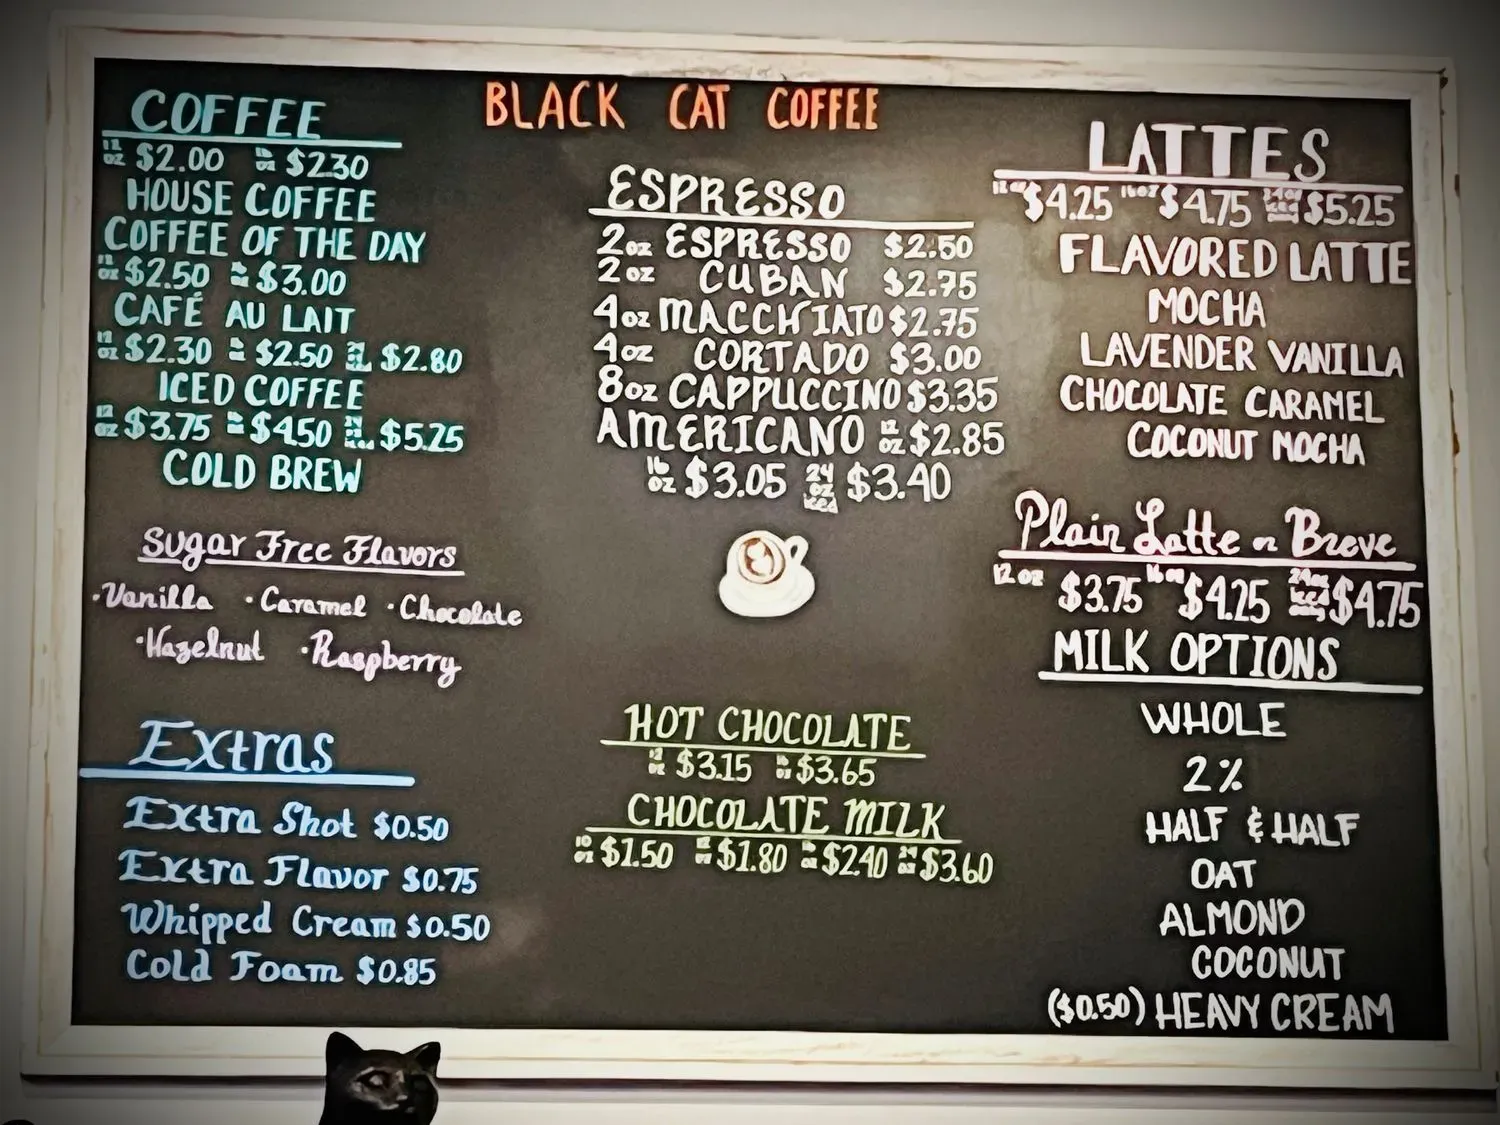 BLACK CAT COFFEE
COFFEE
12 oz $2.00 16 oz $2.30
HOUSE COFFEE
COFFEE OF THE DAY
12 oz $2.50 16 oz $3.00
CAFÉ AU LAIT
12 oz $2.30 16 oz $2.50 24 oz $2.80
ICED COFFEE
12 oz $3.75 16 oz $4.50 24 oz $5.25
COLD BREW
Sugar Free Flavors
·Vanilla ·Caramel ·Chocolate
·Hazelnut ·Raspberry
Extras
Extra Shot $0.50
Extra Flavor $0.75
Whipped Cream $0.50
Cold Foam $0.85
ESPRESSO
2oz ESPRESSO $2.50
2oz CUBAN $2.75
4oz MACCHIATO $2.75
4oz CORTADO $3.00
8oz CAPPUCCINO $3.35
AMERICANO 12 oz $2.85
16 oz $3.05 24 oz iced $3.40
HOT CHOCOLATE
12 oz $3.15 16 oz $3.65
CHOCOLATE MILK
$1.50 12 oz $1.80 16 oz $2.40 24 oz $3.60
LATTES
12 oz $4.25 16 oz $4.75 24 oz iced $5.25
FLAVORED LATTE
MOCHA
LAVENDER VANILLA
CHOCOLATE CARAMEL
COCONUT MOCHA
Plain Latte or Breve
12 oz $3.75 16 oz $4.25 24 oz iced $4.75
MILK OPTIONS
WHOLE
2%
HALF & HALF
OAT
ALMOND
COCONUT
($0.50) HEAVY CREAM